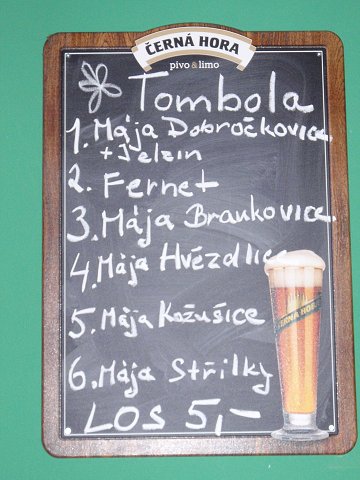 ČERNÁ HORA
pivo & limo
Tombola
1. Mája Dobročkovice
+ Jelzin
2. Fernet
3. Mája Brankovice
4. Mája Hvězdlice
5. Mája Kožušice
6. Mája Střílky
LOS 5,-
ČERNÁ HORA